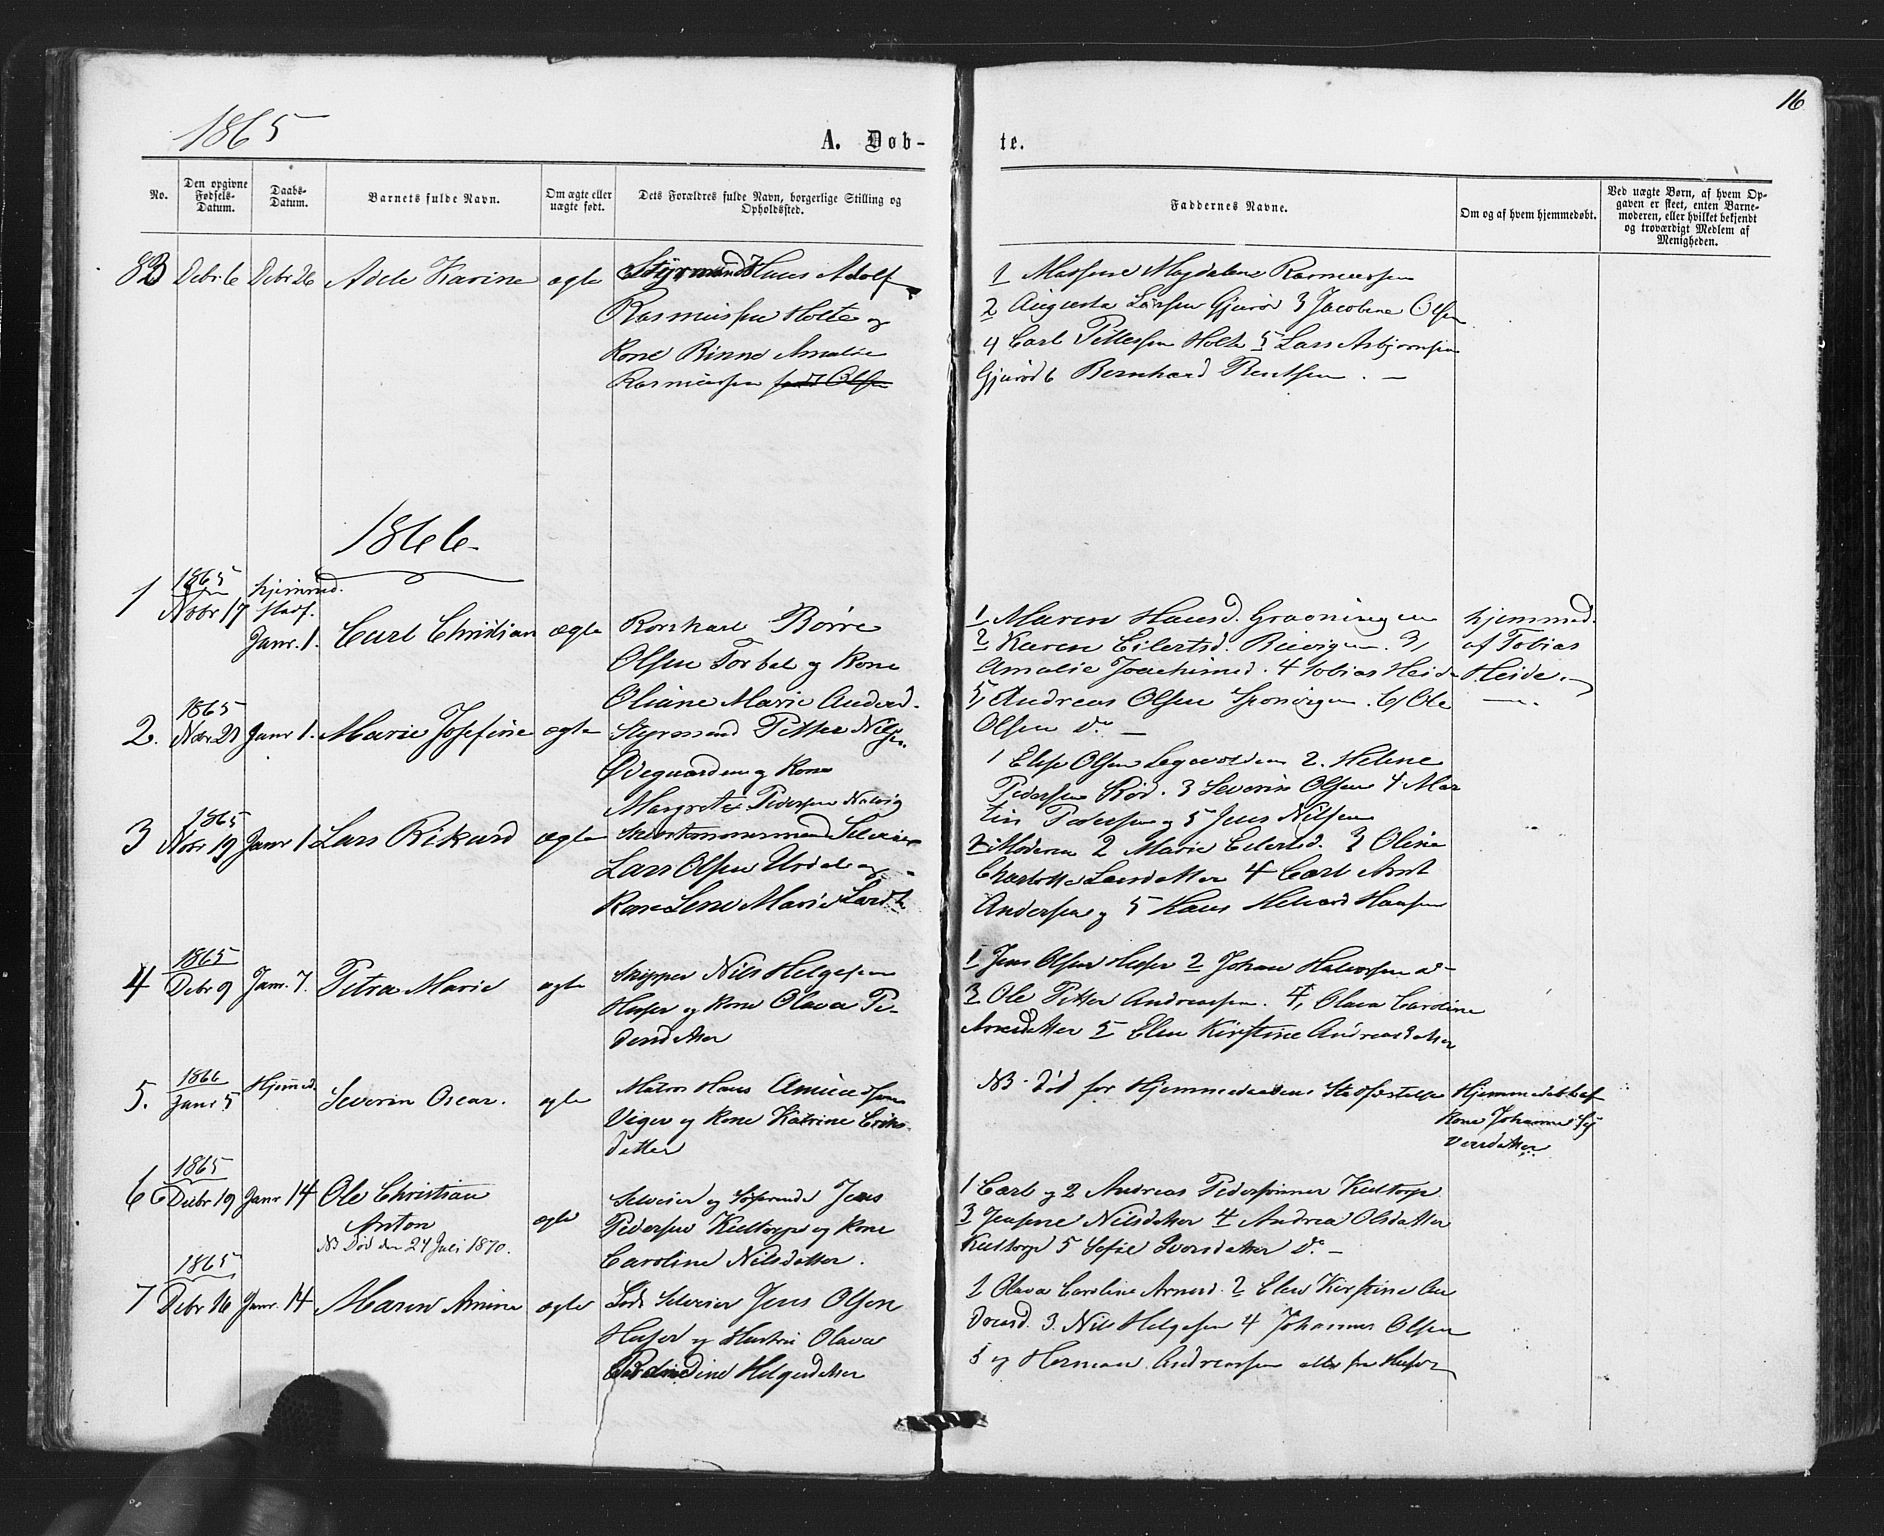 1865
A. Døb-
te.
16
No.
Den opgivne Fødsels-Datum.
Daabs-Datum.
Barnets fulde Navn.
Om ægte eller uægte født.
Dets Forældres fulde Navn, borgerlige Stilling og Opholdssted.
Faddernes Navne.
Om og af hvem hjemmedøbt.
Ved uægte Børn, af hvem Op-
gaven er skeet, enten Barne-
moderen, eller hvilket bekjendt
og troværdigt Medlem af
Menigheden.
83 Debr 6 Debr 26 Adele Karine ægte Styrmand Hans Adolf
Rasmussen Holte og
Kone Rinne Amalie
Rasmussen født Olsen
1 Magdalene Rasmussen
2 Augusta Larsen Gjerød 3 Jacobine Olsen
4 Carl Pettersen Holte 5 Lars Asbjørnsen
Gjerød 6 Bernhard Rentsen. —
1866
1 1865 Novbr 17 hjemmed.
stadf.
Janr. 1. Carl Christian ægte Børre
Olsen og Kone
Oliane Marie Andersd.
1 Maren Hansd. Graaningen
2 Karen Eilertsd. 3,
Amalie Joachimsd. 4 Tobias Heide
5, Andreas Olsen 6, Ole
Olsen do —
hjemmed.
af Tobias
Heide. —
2. 1865 Janr 1. Marie Josefine ægte Styrmand Petter Nilsen
Ødegaarden og Kone
Margrete Pedersen
1 Olsen 2. Helene
Pedersen Rød. 3 Severin Olsen 4 Mar
tin Pedersen og 5 Jens Nilsen
3 1865 Novbr 19 Janr 1 Lars Rikard ægte
Lars Olsen Urdal og
Kone Lene Marie Larsdtr
1 Moderen 2 Marie Eilertsd. 3 Oline
Charlotte Larsdatter 4 Carl Arnt
Andersen og 5 Hans Hansen
4 1865 Debr 9 Janr. 7. Petra Marie ægte Skipper Nils Helgesen
Hesser og Kone Olava Pe-
dersdatter
1 Jens Olsen Hesser 2 Johan Halvorsen do
3 Ole Petter Andreassen. 4, Olava Caroline
Arnesdatter 5 Elen Kirstine Andreasdatter
5. 1866 Janr 5 Hjemmed. Severin Oscar. ægte Matros Hans Amundsen
Viger og Kone Katrine Eriks-
datter
NB. Død før Hjemmedaabens Stadfæstelse
Hjemmedøbt af
Kone Johanne Sy
versdatter
6 1865 Decbr 19 Janr 14 Ole Christian
Anton
NB Død den 24 Juli 1870.
ægte Selveier og Jens
Pedersen Keltorp og Kone
Caroline Nilsdatter.
1 Carl og 2 Andreas Pedersønner Keltorp
3 Jensine Nilsdatter 4 Andrea Olsdatter
Keltorp 5 Sofie Iversdatter do —
7 1865 Debr 16 Janr. 14 Maren Amine ægte Lods Selveier Jens Olsen
Hesser og Hustru Olava
Helgesdatter
1 Olava Caroline Arnesd. 2 Elen Kirstine An
dreasd. 3. Nils Helgesen 4 Johannes Olsen
5 og Herman Andreassen alle fra Hesser